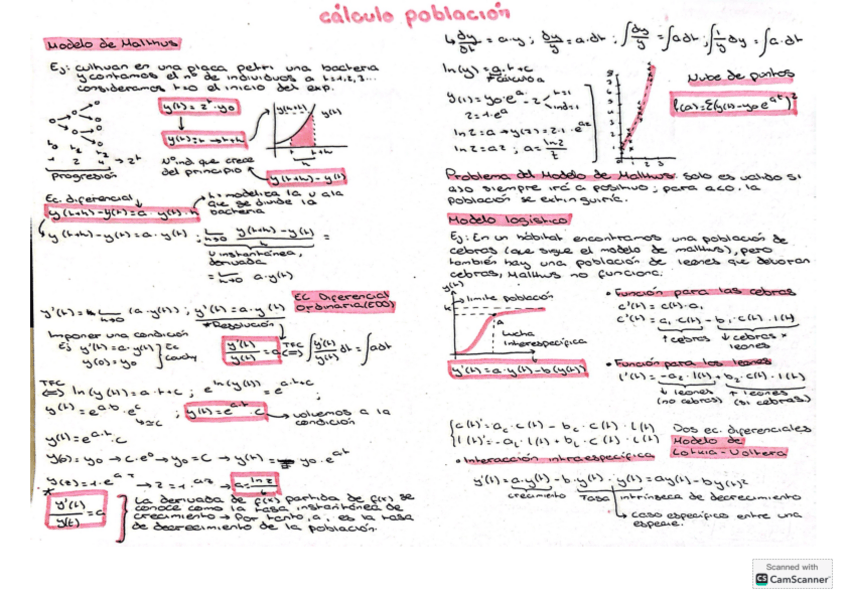 cálculo población
Modelo de Malthus
Ej: cultivan en una placa petri una bacteria
y contamos el nº de individuos a t=1,2,3...
consideramos t=0 el inicio del exp.
y(t)= 2^t · y0
y(t+h)
y(t)
t t+h
h
1 2 4 → 2^t
Progresión
Nº ind. que crece
del principio
y(t+h)-y(t)
Ec. diferencial
y(t+h)-y(t)=a·y(t)·h
h= modeliza la
que se divide la
bacteria
y(t+h)-y(t)=a·y(t)
y(t+h)-y(t)
h
instantánea,
derivada
a·y(t)
EC Diferencial
Ordinaria (EDO)
(a·y(t)); y'(t)=a·y(t)
*Resolución
Imponer una condición
Ej y'(t)=a·y(t)
y(0)=y0
Ec
Cauchy
y'(t)/y(t)=a TFC (=>) ∫y'(t)/y(t) dt = ∫a dt
TFC
(=>) ln(y(t))=a·t+c; e^ln(y(t)) = e^a·t+c;
; y(t)=e^a·t · C → volvemos a la
condición
y(t)=e^a·t · C
y(0)=y0 → C·e^0 → y0=C → y(t)= y0·e^at
→ a= ln2
y'(t)/y(t) = a
La derivada de f(x) partida de f(x) se
conoce como la tasa instantánea de
crecimiento → Por tanto, a, es la tasa
de decrecimiento de la población.
↳ dy/dt = a·y; dy/y = a·dt; ∫dy/y = ∫a dt; ∫1/y dy = ∫a·dt
ln(y)= a·t+c
*cálculo a
Nube de puntos
ln2=a2; a= ln2/t
Problema del Modelo de Malthus: solo es valido si
a>0 siempre irá a positivo; para a<0, la
población se extinguiría.
Modelo logístico
Ej: En un hábitat encontramos una población de
cebras (que sigue el modelo de malthus), pero
también hay una población de leones que devoran
cebras, Malthus no funciona.
y(t)
limite población
k
Lucha
interespecífica
y'(t)=a·y(t)-b(y(t))
• Función para las cebras
c'(t) = c(t)·a1
c'(t) = a1·c(t) - b1·c(t)·l(t)
↑ cebras ↓ cebras x
leones
• Función para los leones
l'(t) = -a2·l(t) + b2·c(t)·l(t)
↓ leones ↑ leones
(no cebras) (si cebras)
c(t)'= a1·c(t) - b1·c(t)·l(t) Dos ec. diferenciales
l(t)'= -a2·l(t) + b2·c(t)·l(t) Modelo de
Lotka-Voltera
• Interacción intraespecífica
y'(t)=a·y(t)-b·y(t)·y(t)=ay(t)-by(t)²
crecimiento Tasa intrínseca de decrecimiento
↳ caso específico entre una
especie.
Scanned with
CS CamScanner